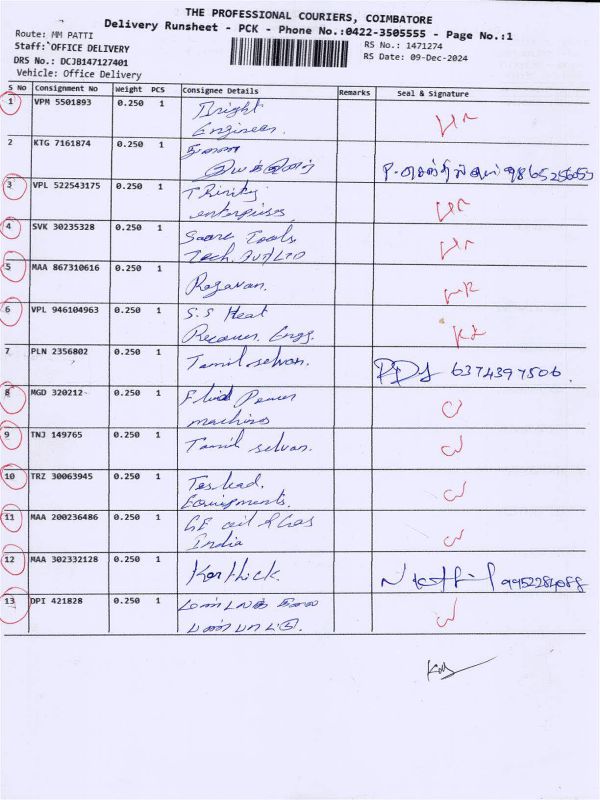 THE PROFESSIONAL COURIERS, COIMBATORE
Delivery Runsheet - PCK - Phone No.:0422-3505555 - Page No.:1
Route: MM PATTI
Staff: OFFICE DELIVERY
RS No.: 1471274
DRS No.: DCJB147127401
RS Date: 09-Dec-2024
Vehicle: Office Delivery
S No Consignment No Weight PCS Consignee Details Remarks Seal & Signature
1 VPM 5501893 0.250 1 Bright
Engineer.
2 KTG 7161874 0.250 1
9865256053
3 VPL 522543175 0.250 1 Trinity
enterprises
4 SVK 30235328 0.250 1 Tools
Tech. Pvt/LTD
5 MAA 867310616 0.250 1 Ragavan.
6 VPL 946104963 0.250 1 S.S Heat
Recover. Engg.
7 PLN 2356802 0.250 1 Tamil selvan. 6374397506.
8 MGD 320212 0.250 1 Fluid Power
machines
9 TNJ 149765 0.250 1 Tamil selvan.
10 TRZ 30063945 0.250 1
Equipments.
11 MAA 200236486 0.250 1 GE oil & Gas
India
12 MAA 302332128 0.250 1 Karthick. 9952284088
13 DPI 421828 0.250 1